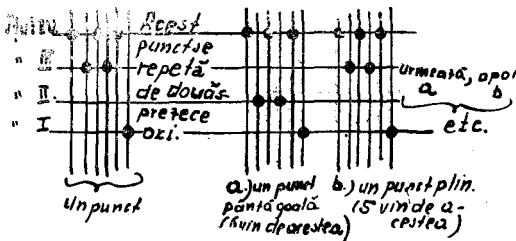 Acest
" III punct se
repetă
" II de douăs-
prezece
" I ori.
urmează, apoi
a b
etc.
un punct
a.) un punct
pântă goală
vin de acestea)
b.) un punct plin.
(5 vin de a-
cestea)